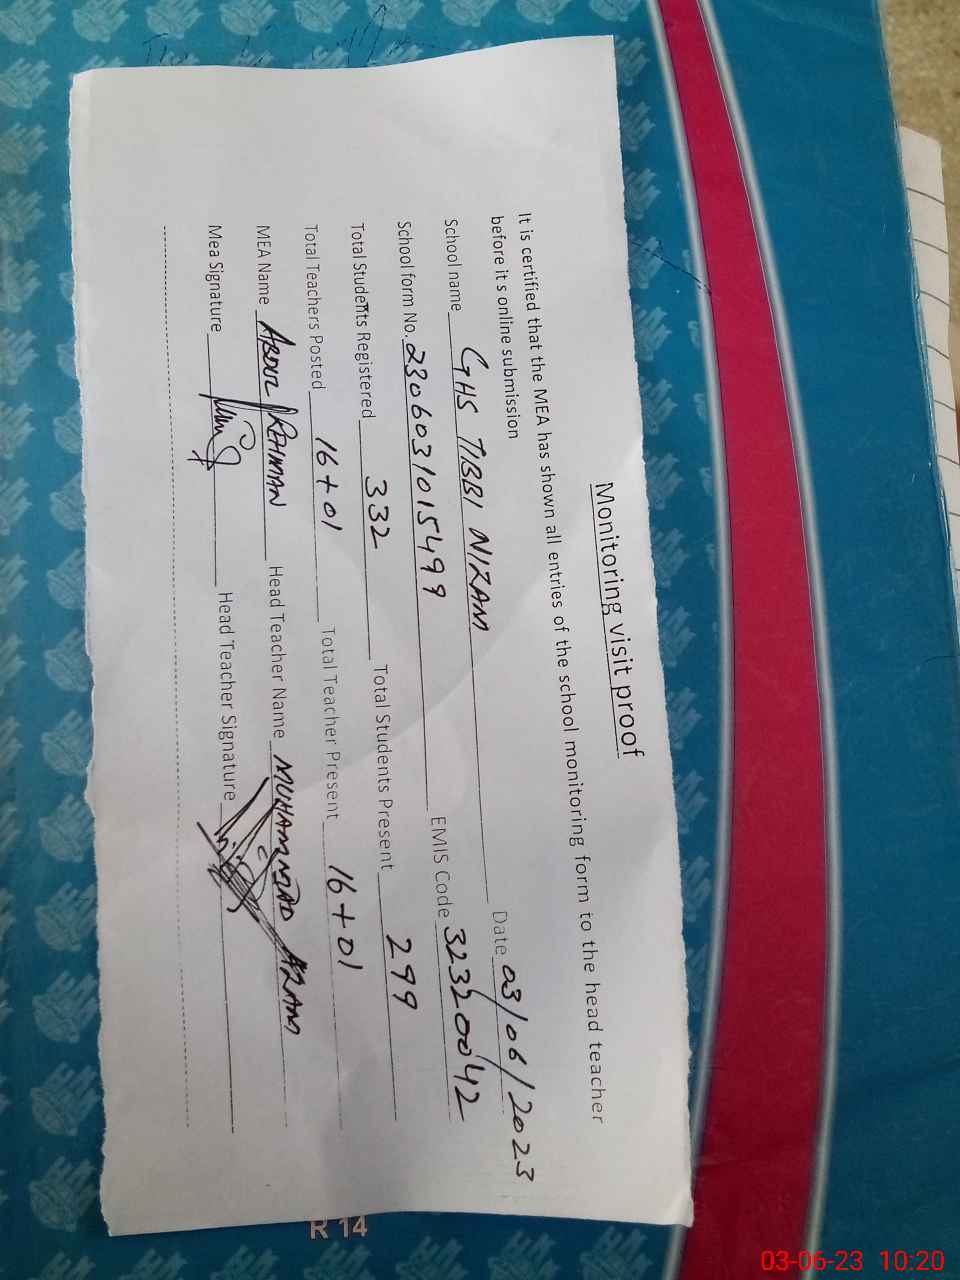 Monitoring visit proof
It is certified that the MEA has shown all entries of the school monitoring form to the head teacher
before it s online submission
School name GHS TIBBI NIZAM Date 03/06/2023
School form No. 2306031015499 EMIS Code 32320042
Total Students Registered 332 Total Students Present 299
Total Teachers Posted 16+01 Total Teacher Present 16+01
MEA Name ABDUL REHMAN Head Teacher Name MUHAMMAD AZAM
Mea Signature Head Teacher Signature
R 14
03-06-23 10:20